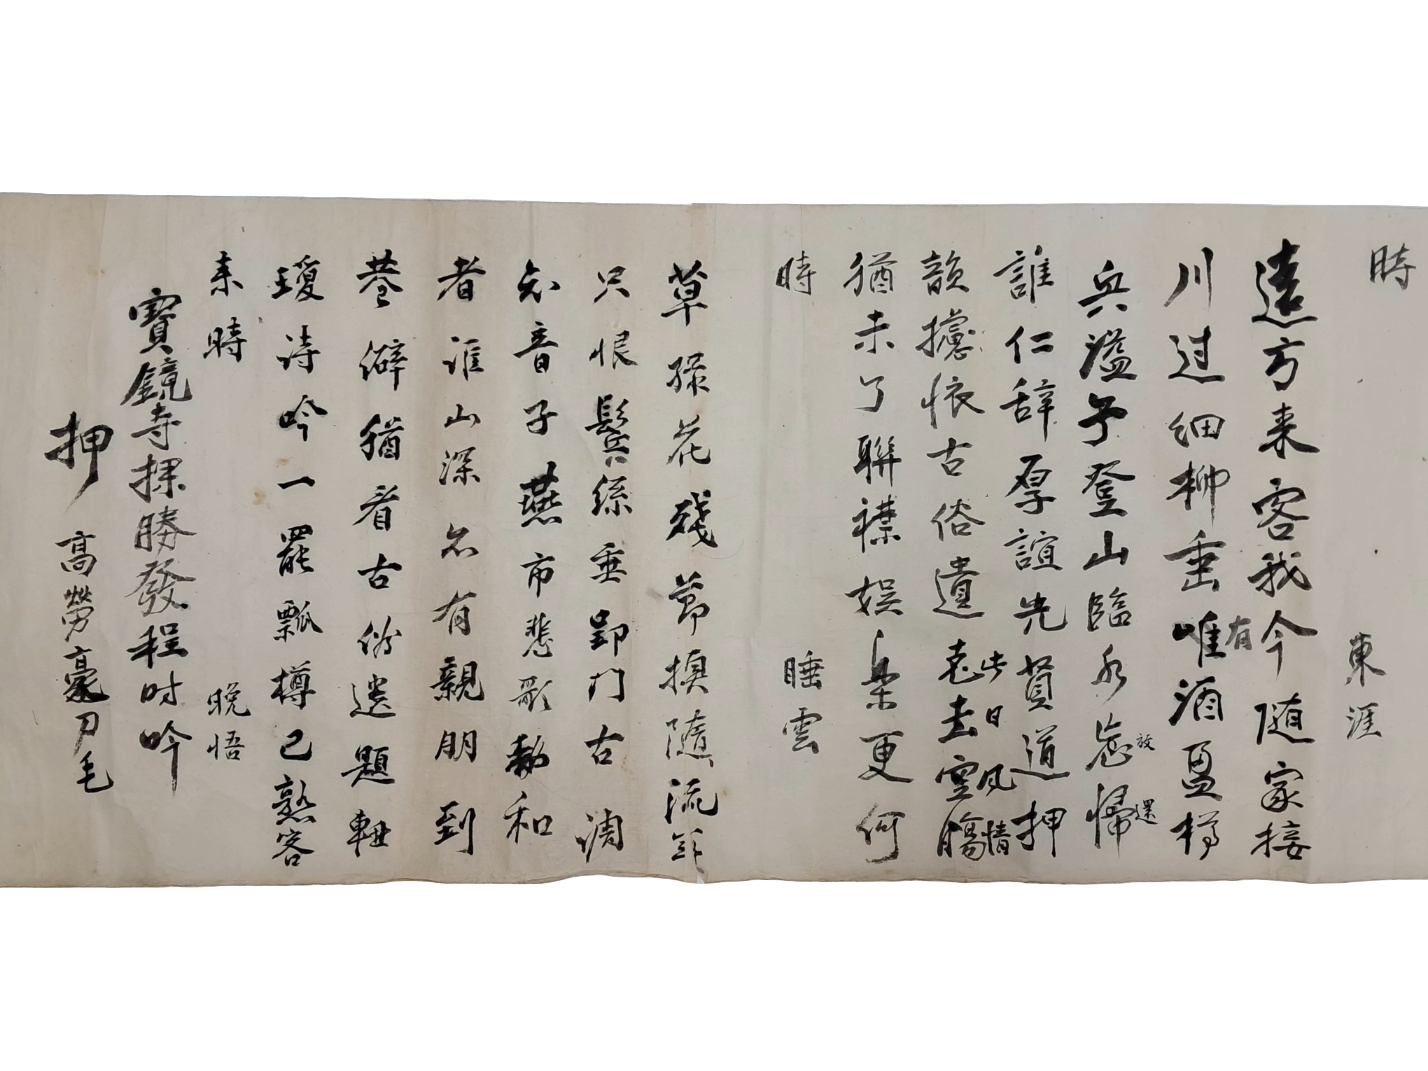 時 東涯
遠方来客我今随家接
有
川过细柳垂唯酒盈樽
兵溢予登山臨水忘帰
放 還
誰仁辞厚誼先賢道押
韻攄懐古俗遺 去空傷
此日風情
猶未了聯襟娯樂更何
時 睡雲
草緑花残節換隨流年
只恨鬂絲垂 門古調
知音子燕市悲歌勸和
者誰山深亦有親朋到
巷僻猶看古俗遺題軸
瓊诗吟一罷瓢樽已熟客
来時 晩悟
寶鏡寺探勝發程时吟
押 高労毫刀毛